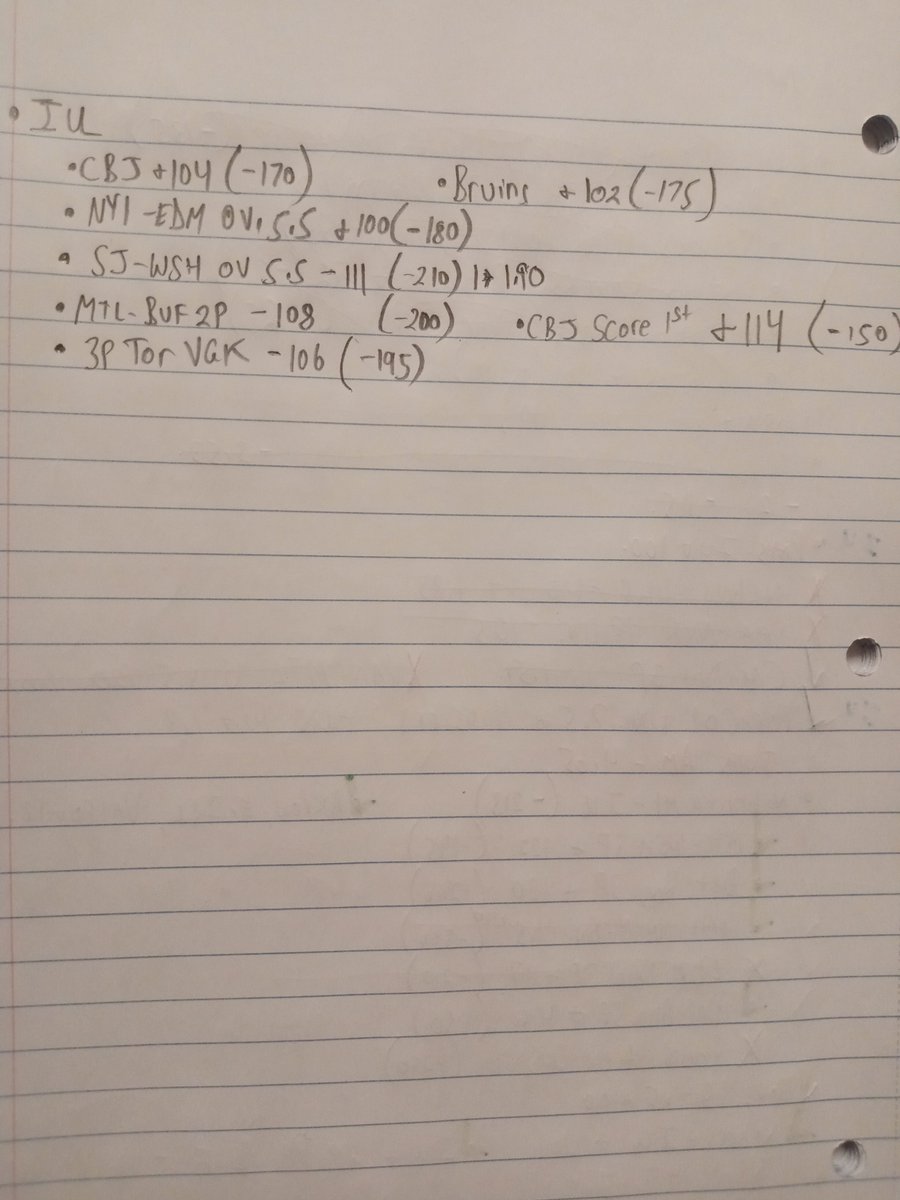 • IU
• CBJ +104 (-170) • Bruins +102 (-175)
• NYI-EDM OV. 5.5 +100 (-180)
• SJ-WSH OV 5.5 -111 (-210) 1.90
• MTL-BUF 2P -108 (-200) • CBJ Score 1st +114 (-150)
• 3P Tor VGK -106 (-195)